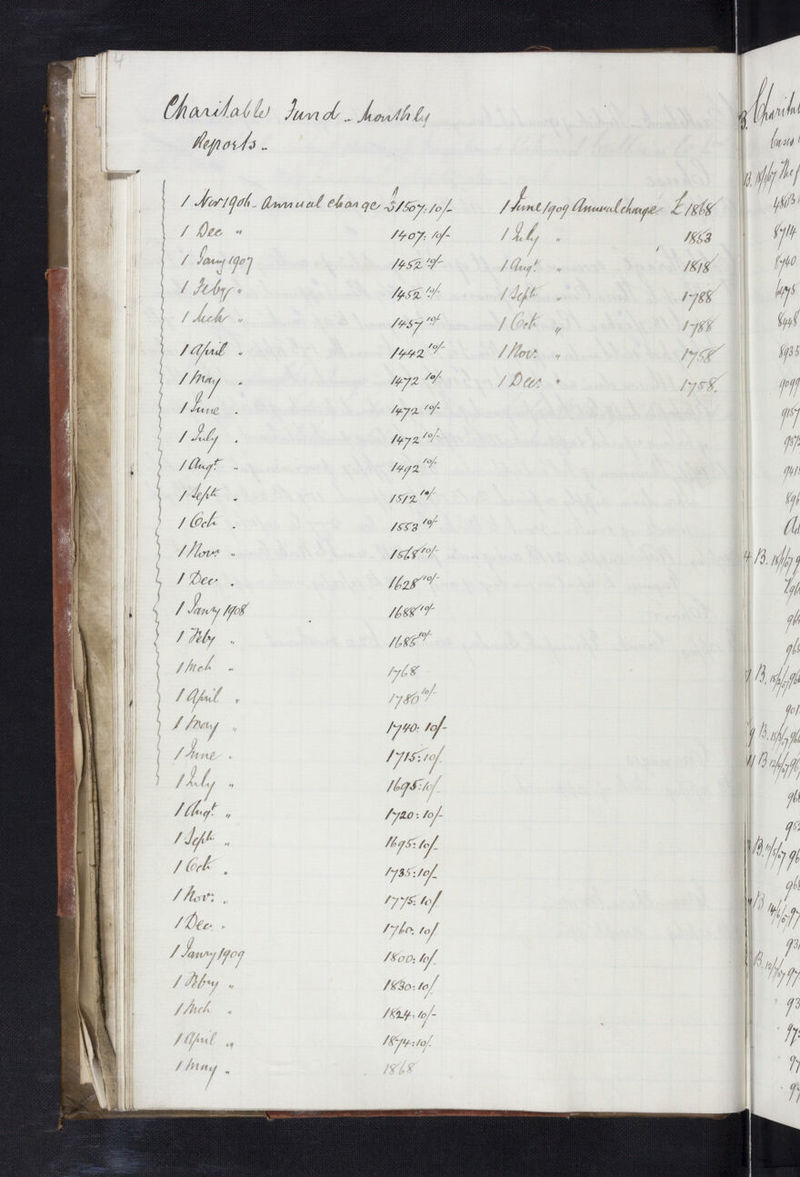 4
Charitable Fund - Monthly
Reports -
1 Nov 1906 - Annual charge £1507:10/-
1 Dec " 1407:10/-
1 Jany 1907 1452 10/-
1 Feby " 1452 10/-
1 Mch " 1457 10/-
1 April . 1442 10/-
1 May . 1472 10/-
1 June . 1472 10/-
1 July . 1472 10/-
1 Augt. " 1492 10/-
1 Sept . 1512 10/-
1 Oct . 1553 10/-
1 Novr. " 1568 10/-
1 Dec . 1628 10/-
1 Janry 1908 1688 10/-
1 Feby " 1685 10/-
1 Mch " 1768
1 April " 1780 10/-
1 May " 1740:10/-
1 June . 1715:10/-
1 July " 1695:10/-
1 Augt. " 1720:10/-
1 Sept " 1695:10/-
1 Oct . 1735:10/-
1 Nov: . 1775:10/
1 Dec. . 1760:10/
1 Janry 1909 1800:10/-
1 Febry " 1830:10/
1 Mch " 1824:10/-
1 April " 1874:10/-
1 May " 1868
1 June 1909 Annual charge £1868
1 July " 1853
1 Augt. " 1818
1 Sept " 1788
1 Oct " 1788
1 Nov: " 1758
1 Decr. " 1758.
8714
8740
8448
8935